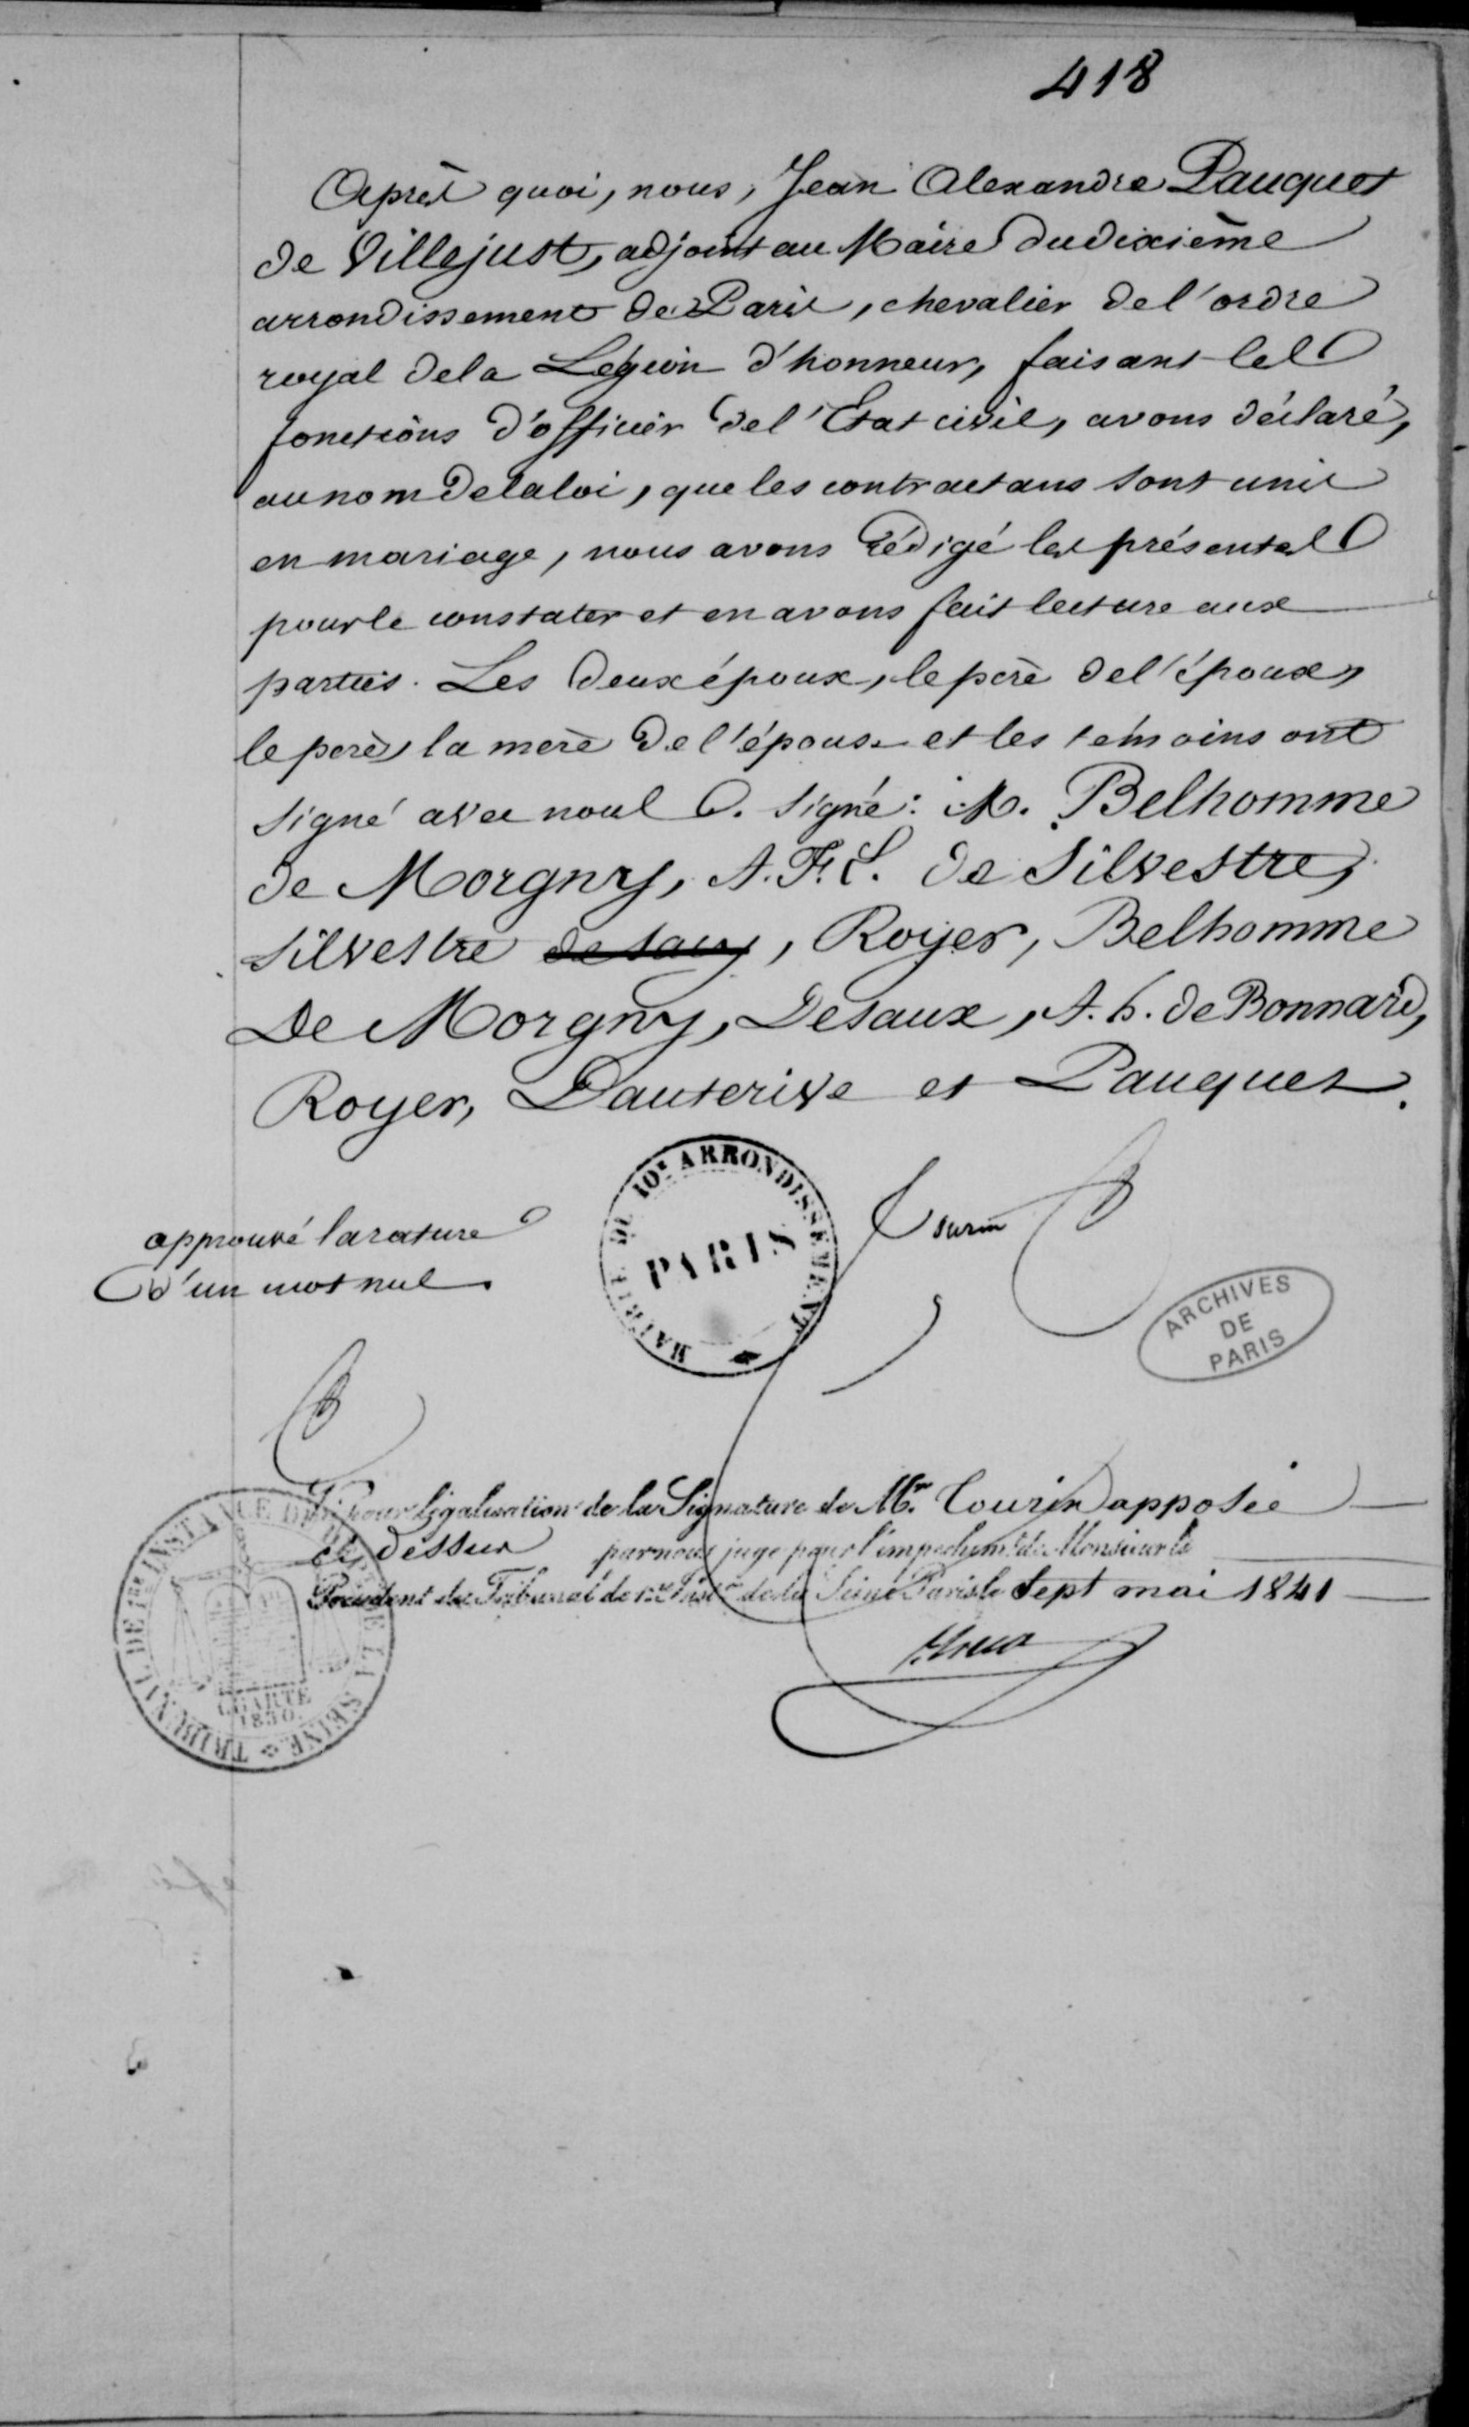 418
Après quoi, nous, Jean Alexandre Pauquet
de Villejust, adjoint au Maire du dixième
arrondissement de Paris, chevalier de l'ordre
royal de la Légion d'honneur, faisant les
fonctions d'officier de l'Etat civil, avons déclaré,
au nom de la loi, que les contractans sont unis
en mariage, nous avons rédigé les présentes
pour le constater et en avons fait lecture aux
parties. Les deux époux, le père de l'époux,
le père, la mère de l'épouse et les témoins ont
signé avec nous. Signé: M. Belhomme
de Morgny, A. F. L. de Silvestre,
Silvestre de Sacy, Royer, Belhomme
De Morgny, Desaux, A. h. de Bonnard,
Royer, Dauterive et Pauquet.
MAIRIE DU 10E ARRONDISSEMENT
PARIS
approuvé la rature
d'un mot nul
ARCHIVES
DE
PARIS
Vu pour légalisation de la Signature de Mr. Tourin apposée
ci dessus par nous juge pour l'empechemt de Monsieur le
Président du Tribunal de 1re Instce de la Seine Paris le Sept mai 1841
TRIBUNAL DE 1RE INSTANCE DU DEPT DE LA SEINE
CHARTE
1830.